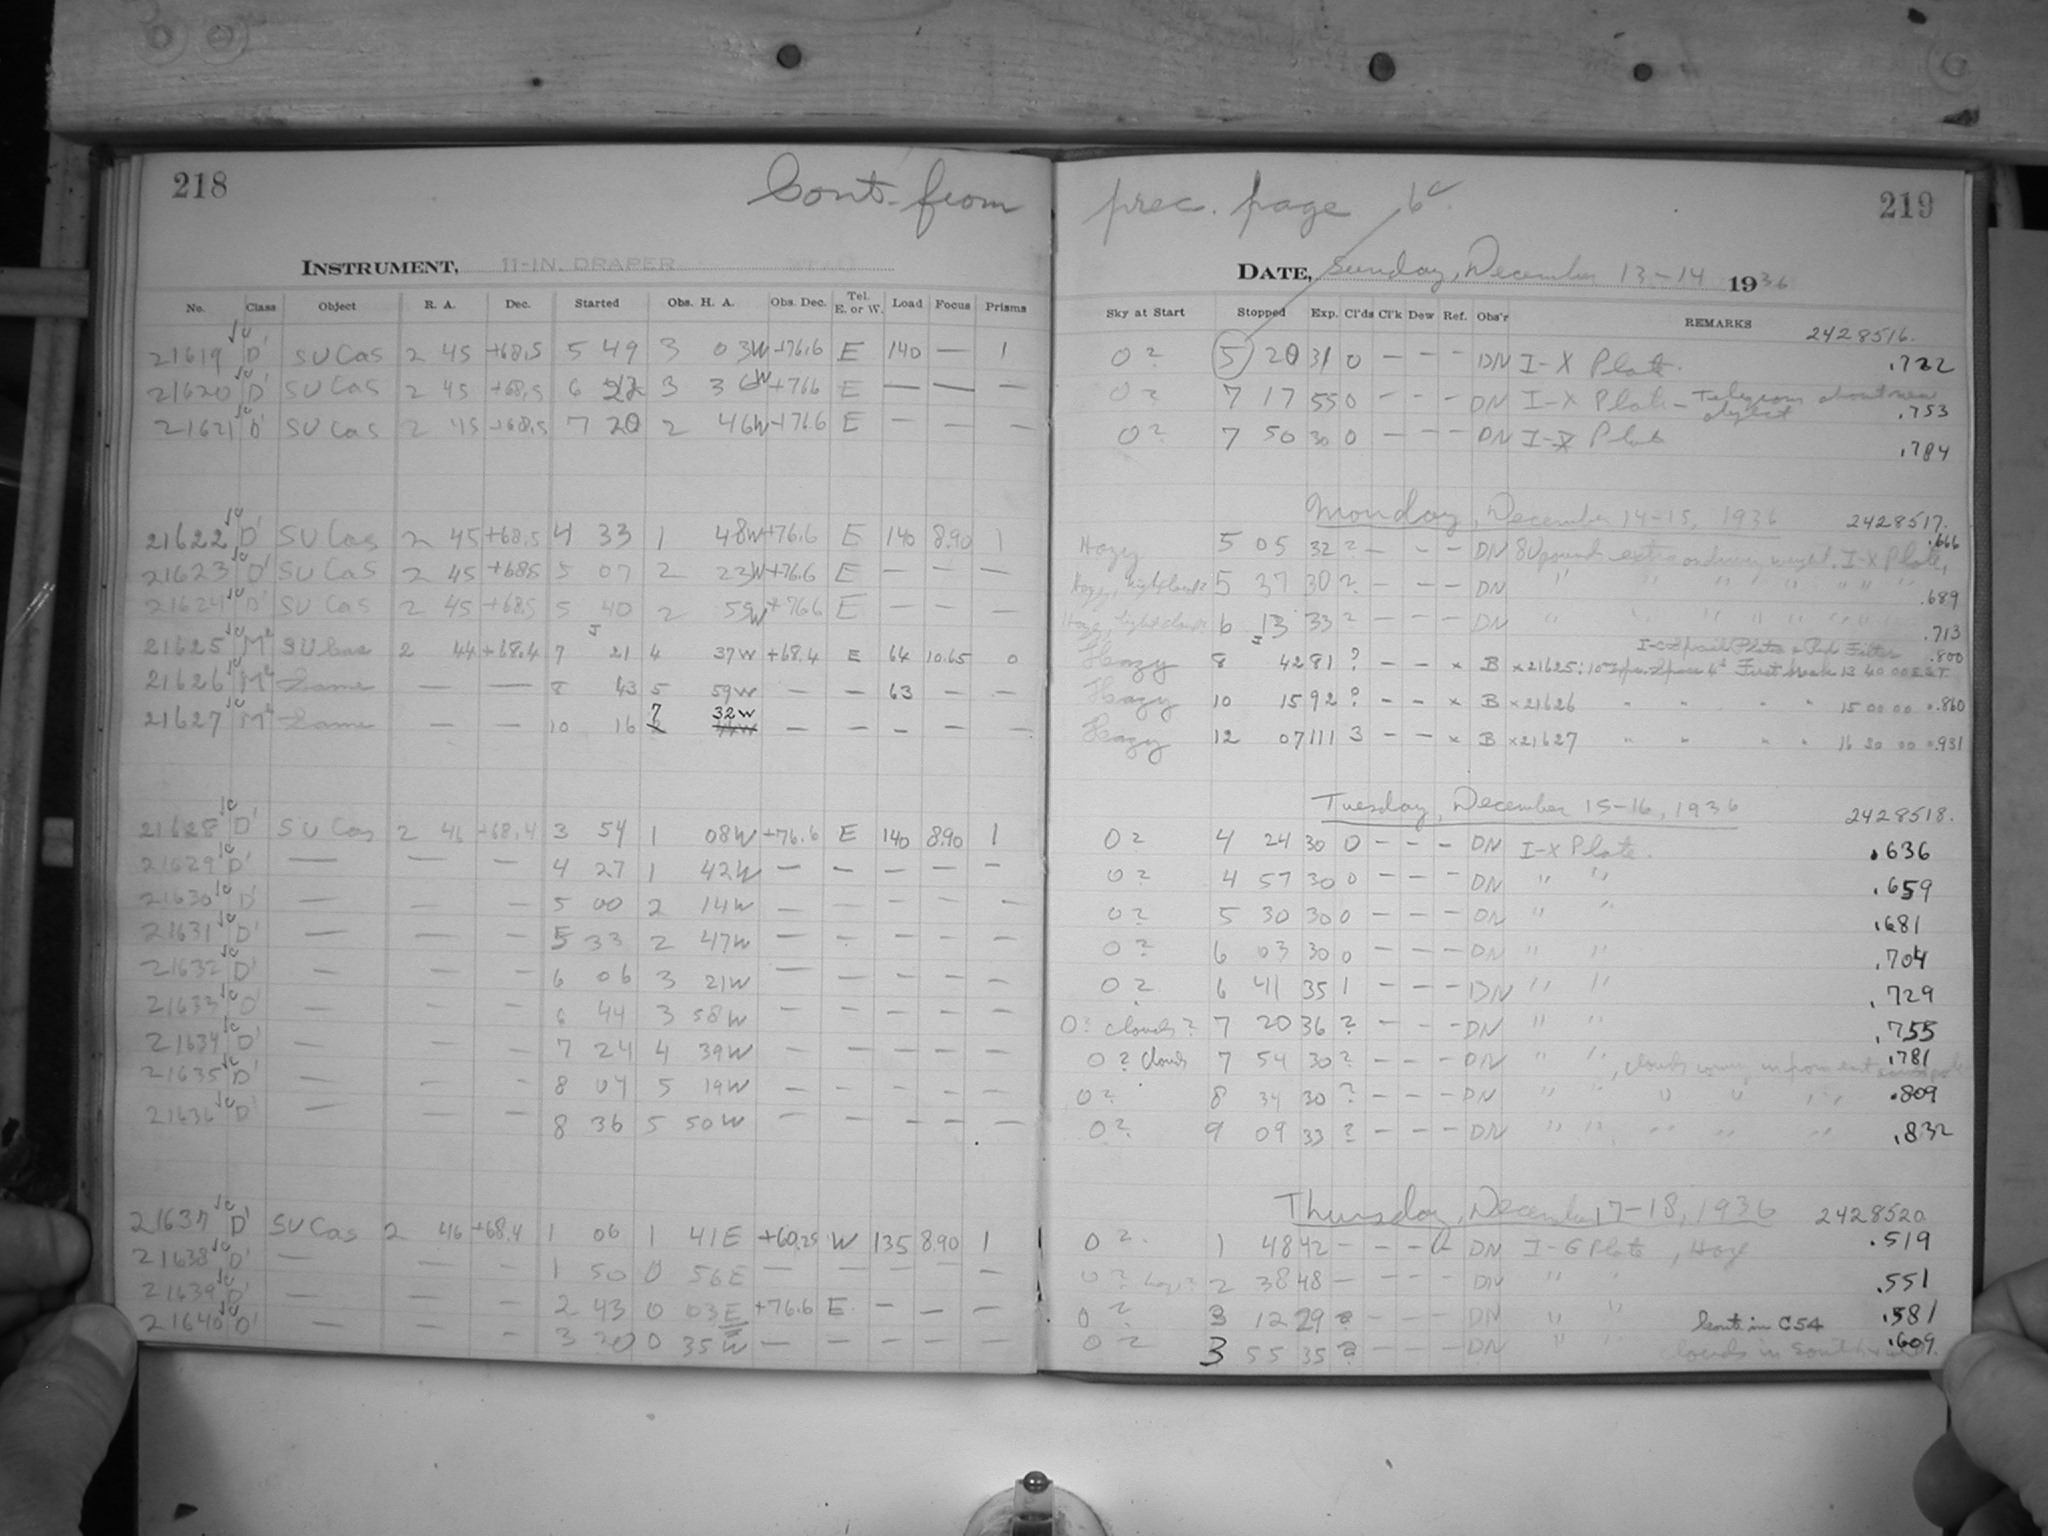 218
Cont. from
INSTRUMENT, 11-IN. DRAPER
No. Class Object R. A. Dec. Started Obs. H. A. Obs. Dec. Tel. E. or W. Load Focus Prisms
21619 D' SU Cas 2 45 +68.5 5 49 3 03W +76.6 E 140 — 1
21620 D' SU Cas 2 45 +68.5 6 22 3 36W +76.6 E — — —
21621 D' SU Cas 2 45 +68.5 7 20 2 46W +76.6 E — — —
21622 D' SU Cas 2 45 +68.5 4 33 1 48W +76.6 E 140 8.90 1
21623 D' SU Cas 2 45 +68.5 5 07 2 22W +76.6 E — — —
21624 D' SU Cas 2 45 +68.5 5 40 2 59W +76.6 E — — —
21625 M² SU Cas 2 44 +68.4 7 21 4 37W +68.4 E 64 10.65 0
21626 M² Same — — 8 43 5 59W — — 63 — —
21627 M² Same — — 10 16 7 32W — — — — —
21628 D' SU Cas 2 46 +68.4 3 54 1 08W +76.6 E 140 8.90 1
21629 D' — — — 4 27 1 42W — — — — —
21630 D' — — — 5 00 2 14W — — — — —
21631 D' — — — 5 33 2 47W — — — — —
21632 D' — — — 6 06 3 21W — — — — —
21633 D' — — — 6 44 3 58W — — — — —
21634 D' — — — 7 24 4 39W — — — — —
21635 D' — — — 8 04 5 19W — — — — —
21636 D' — — — 8 36 5 50W — — — — —
21637 D' SU Cas 2 46 +68.4 1 06 1 41E +60.25 W 135 8.90 1
21638 D' — — — 1 50 0 56E — — — — —
21639 D' — — — 2 43 0 03E +76.6 E — — —
21640 D' — — — 3 20 0 35W — — — — —
prec. page 6 219
DATE, Sunday, December 13-14 1936
Sky at Start Stopped Exp. Cl'ds Cl'k Dew Ref. Obs'r REMARKS 2428516.
0? 5 20 31 0 — — — DN I-X Plate. .722
0? 7 17 55 0 — — — DN I-X Plate - Telegram about new object .753
0? 7 50 30 0 — — — DN I-X Plate .784
Monday, December 14-15, 1936 2428517.
Hazy 5 05 32 ? — — — DN 80 pounds extraordinary weight. I-X Plate, .666
Hazy, 5 37 30 ? — — — DN " " " " " " .689
Hazy, 6 13 33 ? — — — DN " " " " " " .713
I-C Plate & Red Filter .800
Hazy 8 42 81 ? — — x B x21625: First 13 40 00 E.S.T.
Hazy 10 15 92 ? — — x B x21626 " " " " 15 00 00 .860
Hazy 12 07 111 3 — — x B x21627 " " " " 16 30 00 .931
Tuesday, December 15-16, 1936 2428518.
0? 4 24 30 0 — — — DN I-X Plate. .636
0? 4 57 30 0 — — — DN " " .659
0? 5 30 30 0 — — — DN " " .681
0? 6 03 30 0 — — — DN " " .704
0? 6 41 35 1 — — — DN " " .729
0? clouds? 7 20 36 ? — — — DN " " .755
0? clouds 7 54 30 ? — — — DN " ", clouds .781
0? 8 34 30 ? — — — DN " " " " " .809
0? 9 09 33 ? — — — DN " " " " " .832
Thursday, December 17-18, 1936 2428520.
0? 1 48 42 — — — DN I-G Plate, Haze .519
0? 2 38 48 — — — — DN " " .551
0? 3 12 29 ? — — — DN " " Cont. in C54 .581
0? 3 55 35 ? — — — DN " " clouds in south .609